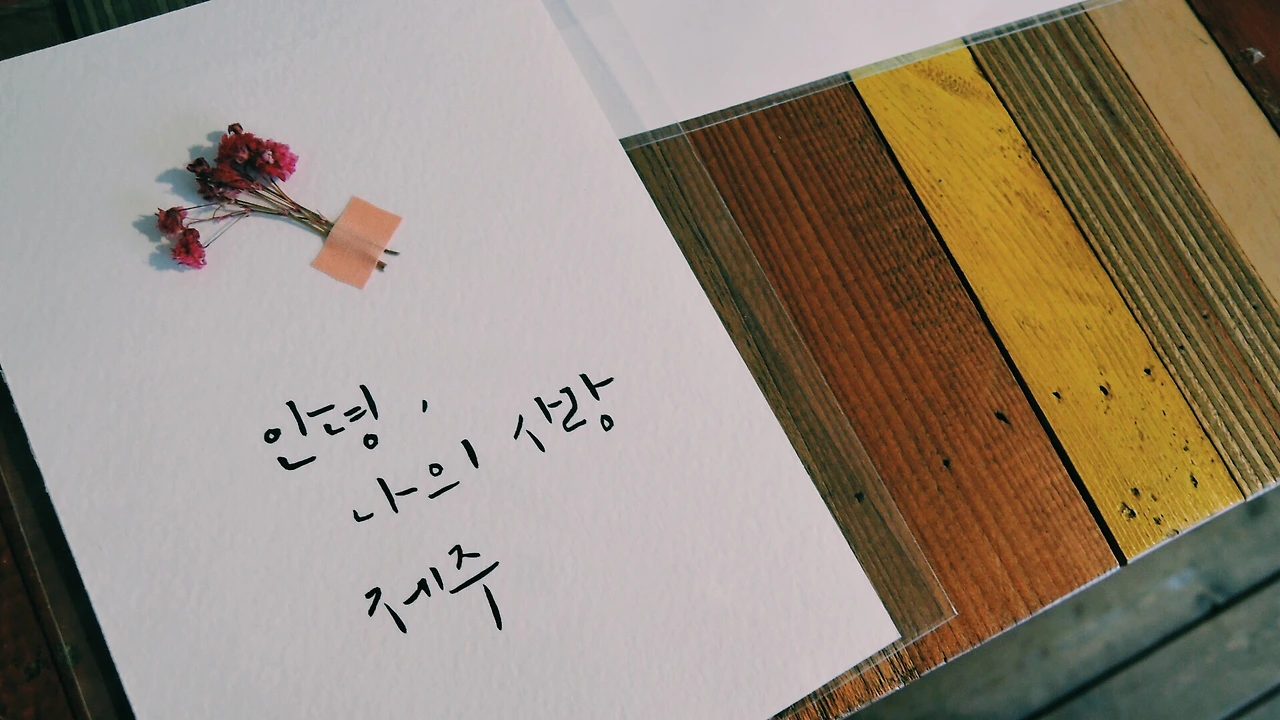 안녕,
나의 사랑
제주